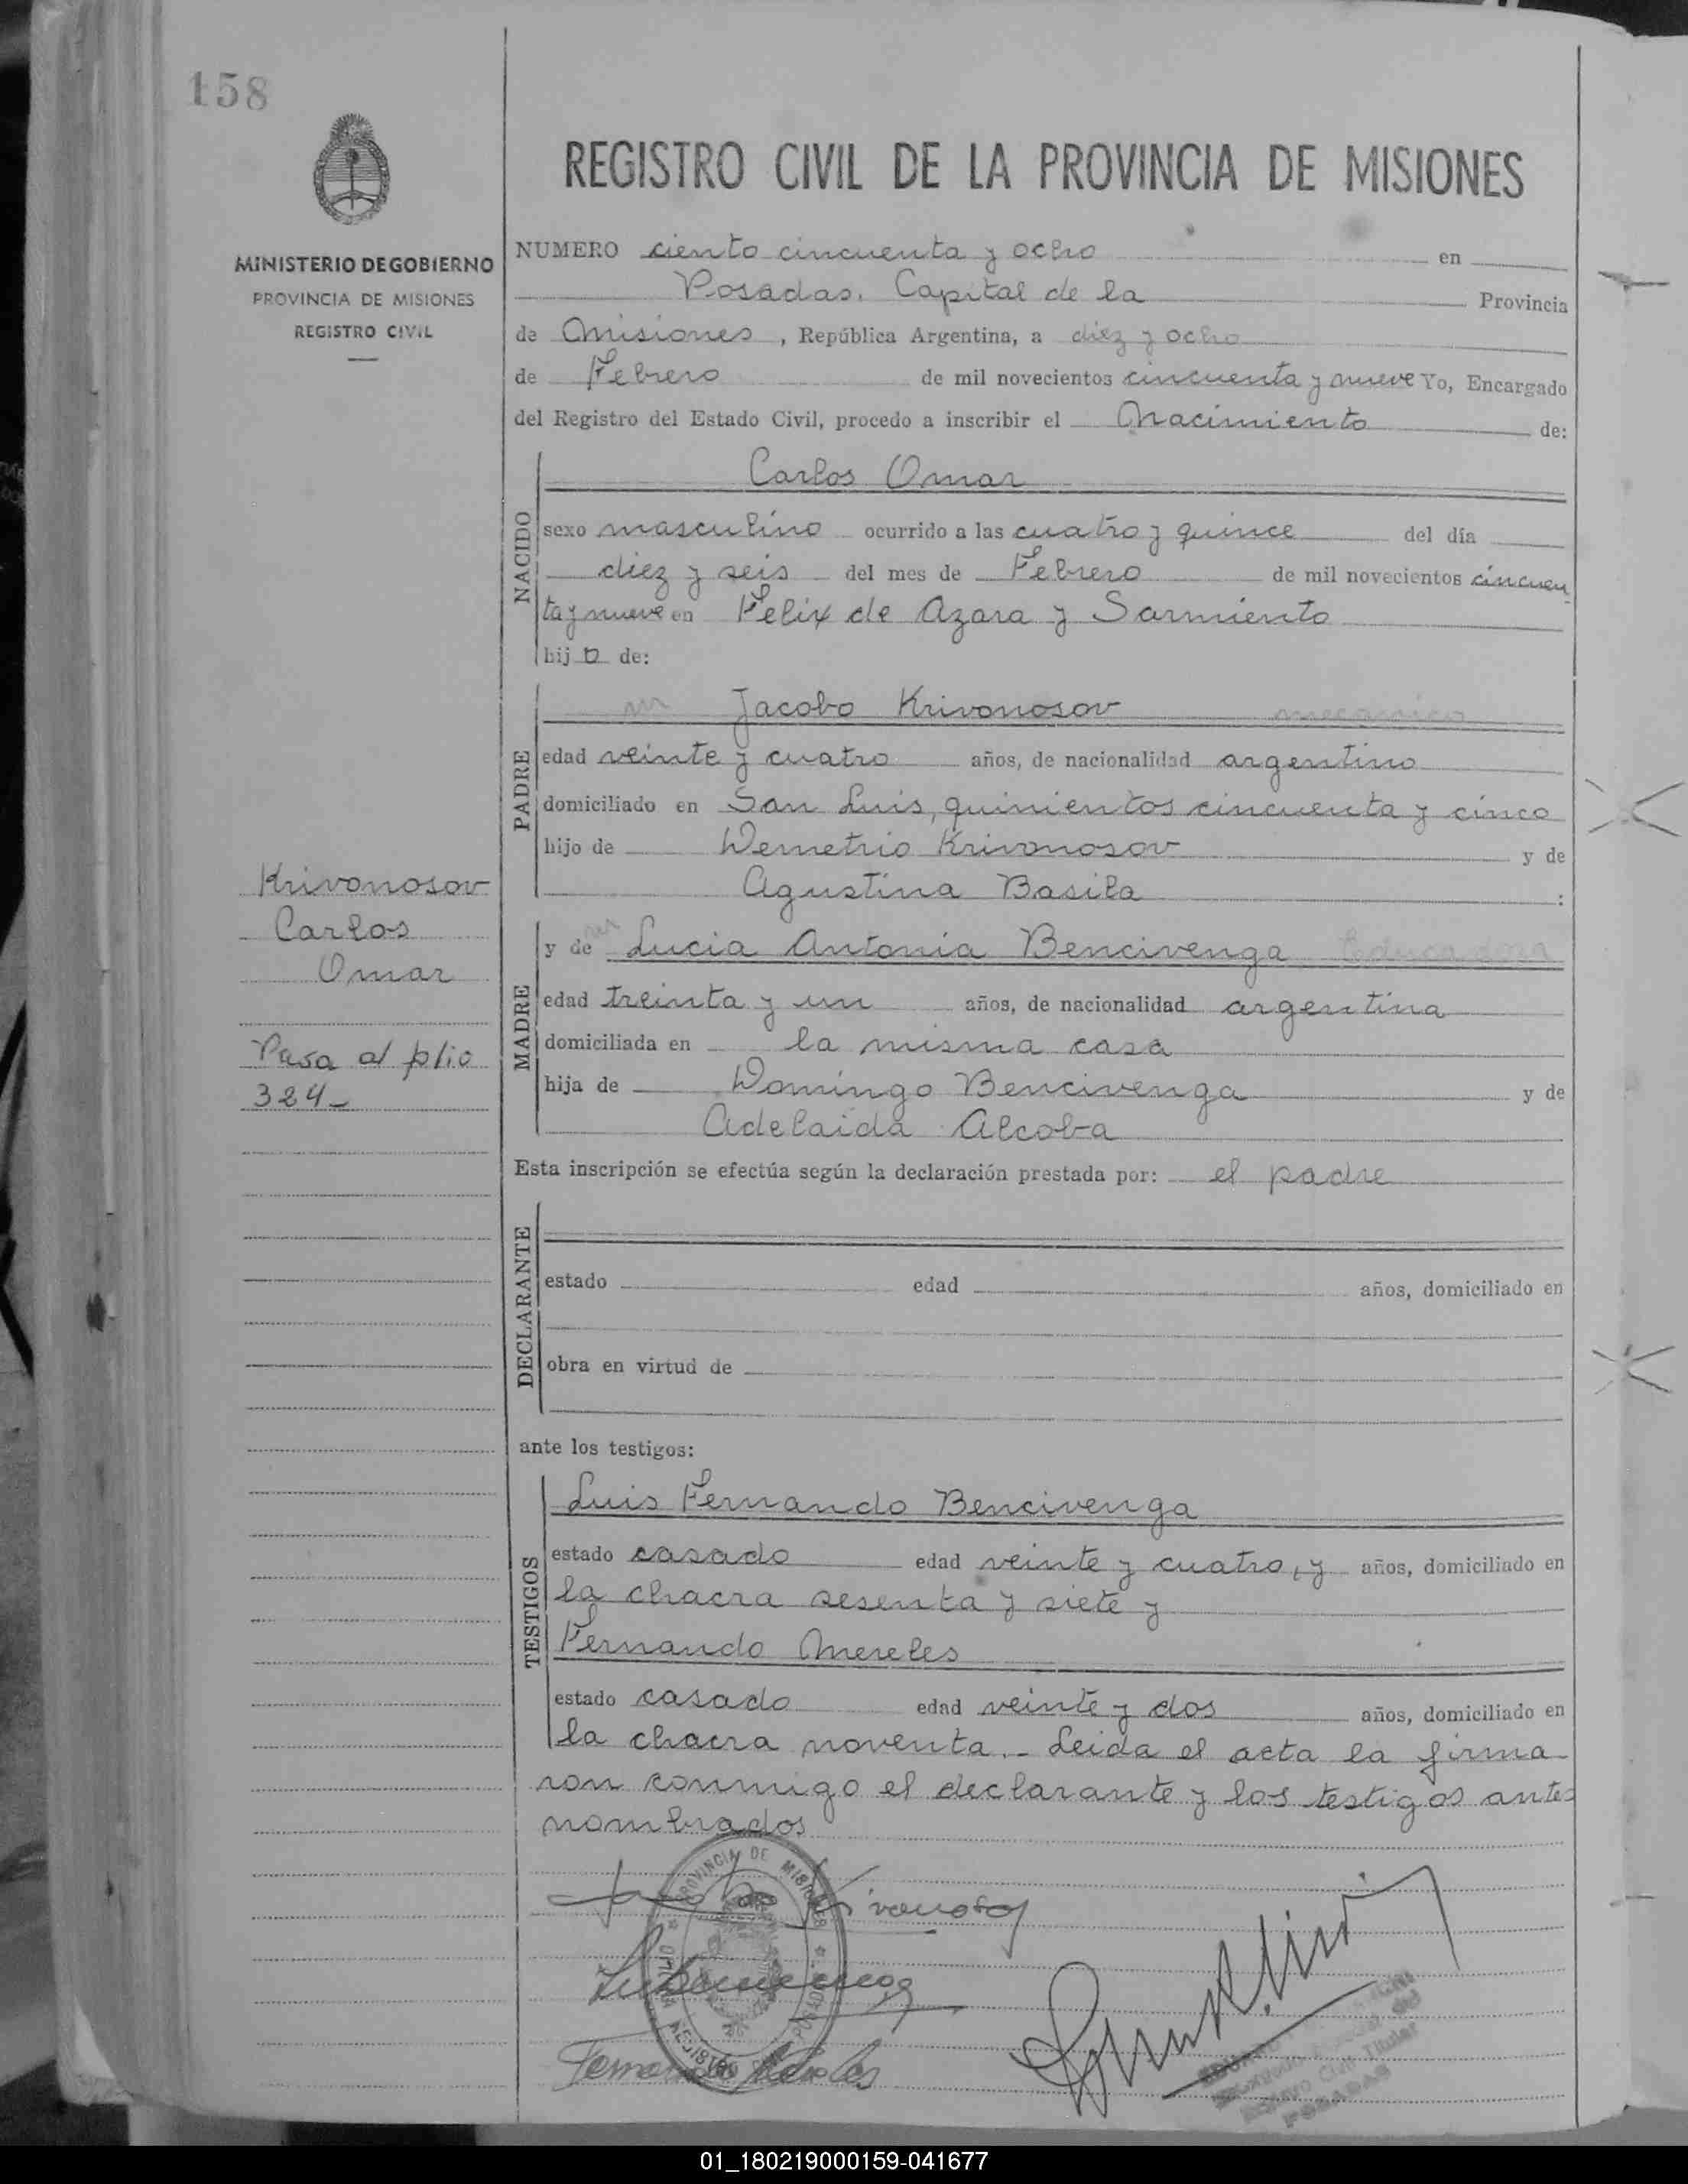 158
MINISTERIO DE GOBIERNO
PROVINCIA DE MISIONES
REGISTRO CIVIL
REGISTRO CIVIL DE LA PROVINCIA DE MISIONES
NUMERO ciento cincuenta y ocho en
Posadas, Capital de la Provincia
de Misiones, República Argentina, a diez y ocho
de Febrero de mil novecientos cincuenta y nueve Yo, Encargado
del Registro del Estado Civil, procedo a inscribir el Nacimiento de:
NACIDO
Carlos Omar
sexo masculino ocurrido a las cuatro y quince del día
diez y seis del mes de Febrero de mil novecientos cincuen
ta y nueve en Felix de Azara y Sarmiento
hijo de:
PADRE
Jacobo Krivonosov mecanico
edad veinte y cuatro años, de nacionalidad argentino
domiciliado en San Luis, quinientos cincuenta y cinco
hijo de Demetrio Krivonosov y de
Agustina Basila :
MADRE
y de Lucia Antonia Bencivenga Educadora
edad treinta y un años, de nacionalidad argentina
domiciliada en la misma casa
hija de Domingo Bencivenga y de
Adelaida Alcoba
Krivonosov
Carlos
Omar
Pasa al folio
324-
Esta inscripción se efectúa según la declaración prestada por: el padre
DECLARANTE
estado edad años, domiciliado en
obra en virtud de
ante los testigos:
TESTIGOS
Luis Fernando Bencivenga
estado casado edad veinte y cuatro, y años, domiciliado en
la chacra sesenta y siete y
Fernando Mereles
estado casado edad veinte y dos años, domiciliado en
la chacra noventa.- Leida el acta la firma
ron conmigo el declarante y los testigos antes
nombrados
PROVINCIA DE MISIONES
Fernando Mereles
Titular
POSADAS
01_180219000159-041677